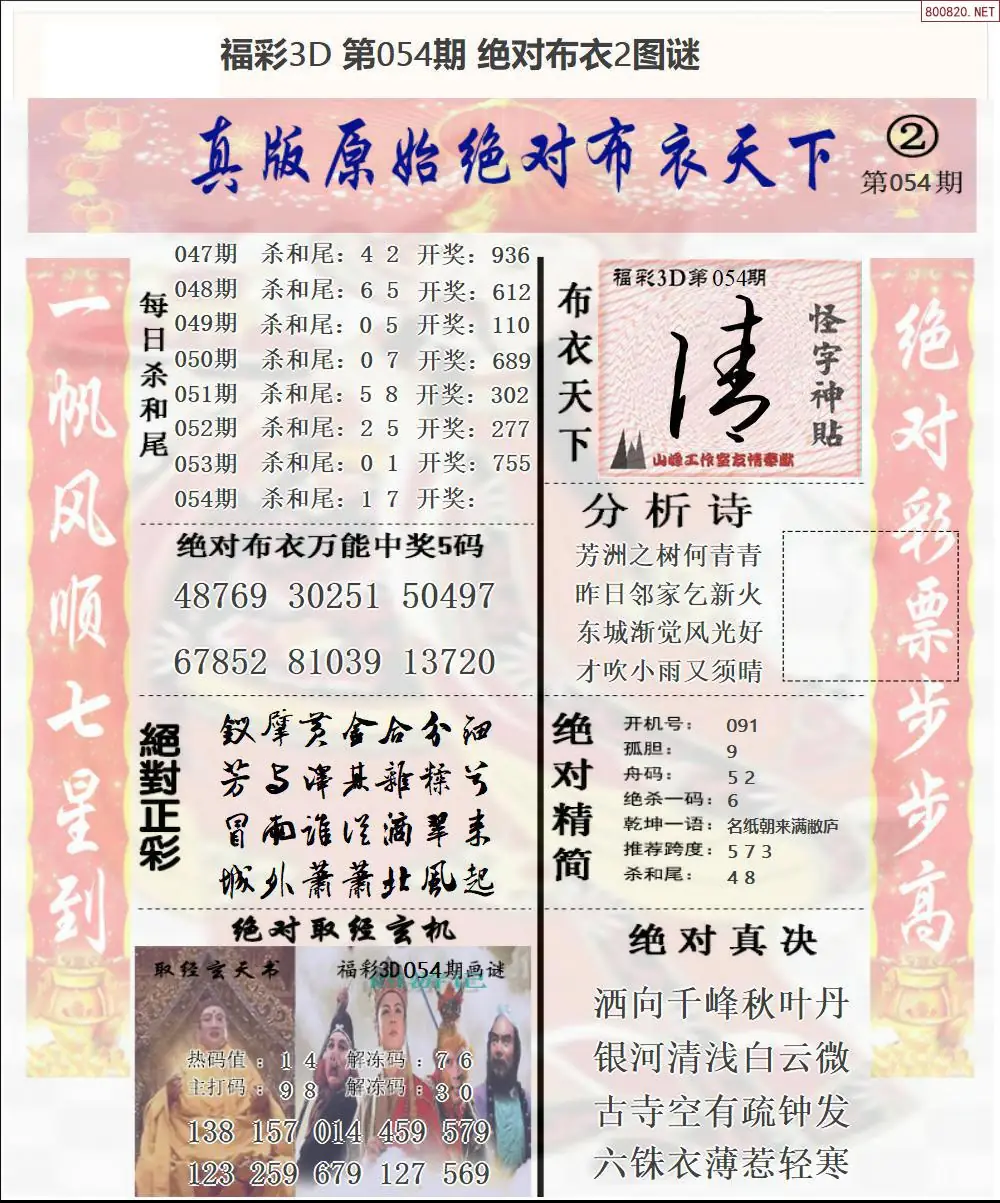 800820.NET
福彩3D 第054期 绝对布衣2图谜
真版原始绝对布衣天下
②
第054期
一帆风顺七星到
每日杀和尾
047期 杀和尾：4 2 开奖：936
048期 杀和尾：6 5 开奖：612
049期 杀和尾：0 5 开奖：110
050期 杀和尾：0 7 开奖：689
051期 杀和尾：5 8 开奖：302
052期 杀和尾：2 5 开奖：277
053期 杀和尾：0 1 开奖：755
054期 杀和尾：1 7 开奖：
绝对布衣万能中奖5码
48769 30251 50497
67852 81039 13720
絕對正彩
钗擘黄金合分细
芳与泽其雜糅兮
冒雨谁従滴翠来
城外萧萧北風起
绝对取经玄机
取经玄天书
福彩3D054期画谜
热码值：1 4 解冻码：7 6
主打码：9 8 解冻码：3 0
138 157 014 459 579
123 259 679 127 569
布衣天下
福彩3D第054期
清
怪字神貼
山峰工作室友情奉献
分析诗
芳洲之树何青青
昨日邻家乞新火
东城渐觉风光好
才吹小雨又须晴
绝对精简
开机号： 091
孤胆： 9
舟码： 5 2
绝杀一码：6
乾坤一语：名纸朝来满敝庐
推荐跨度：5 7 3
杀和尾： 4 8
绝对真决
洒向千峰秋叶丹
银河清浅白云微
古寺空有疏钟发
六铢衣薄惹轻寒
绝对彩票步步高